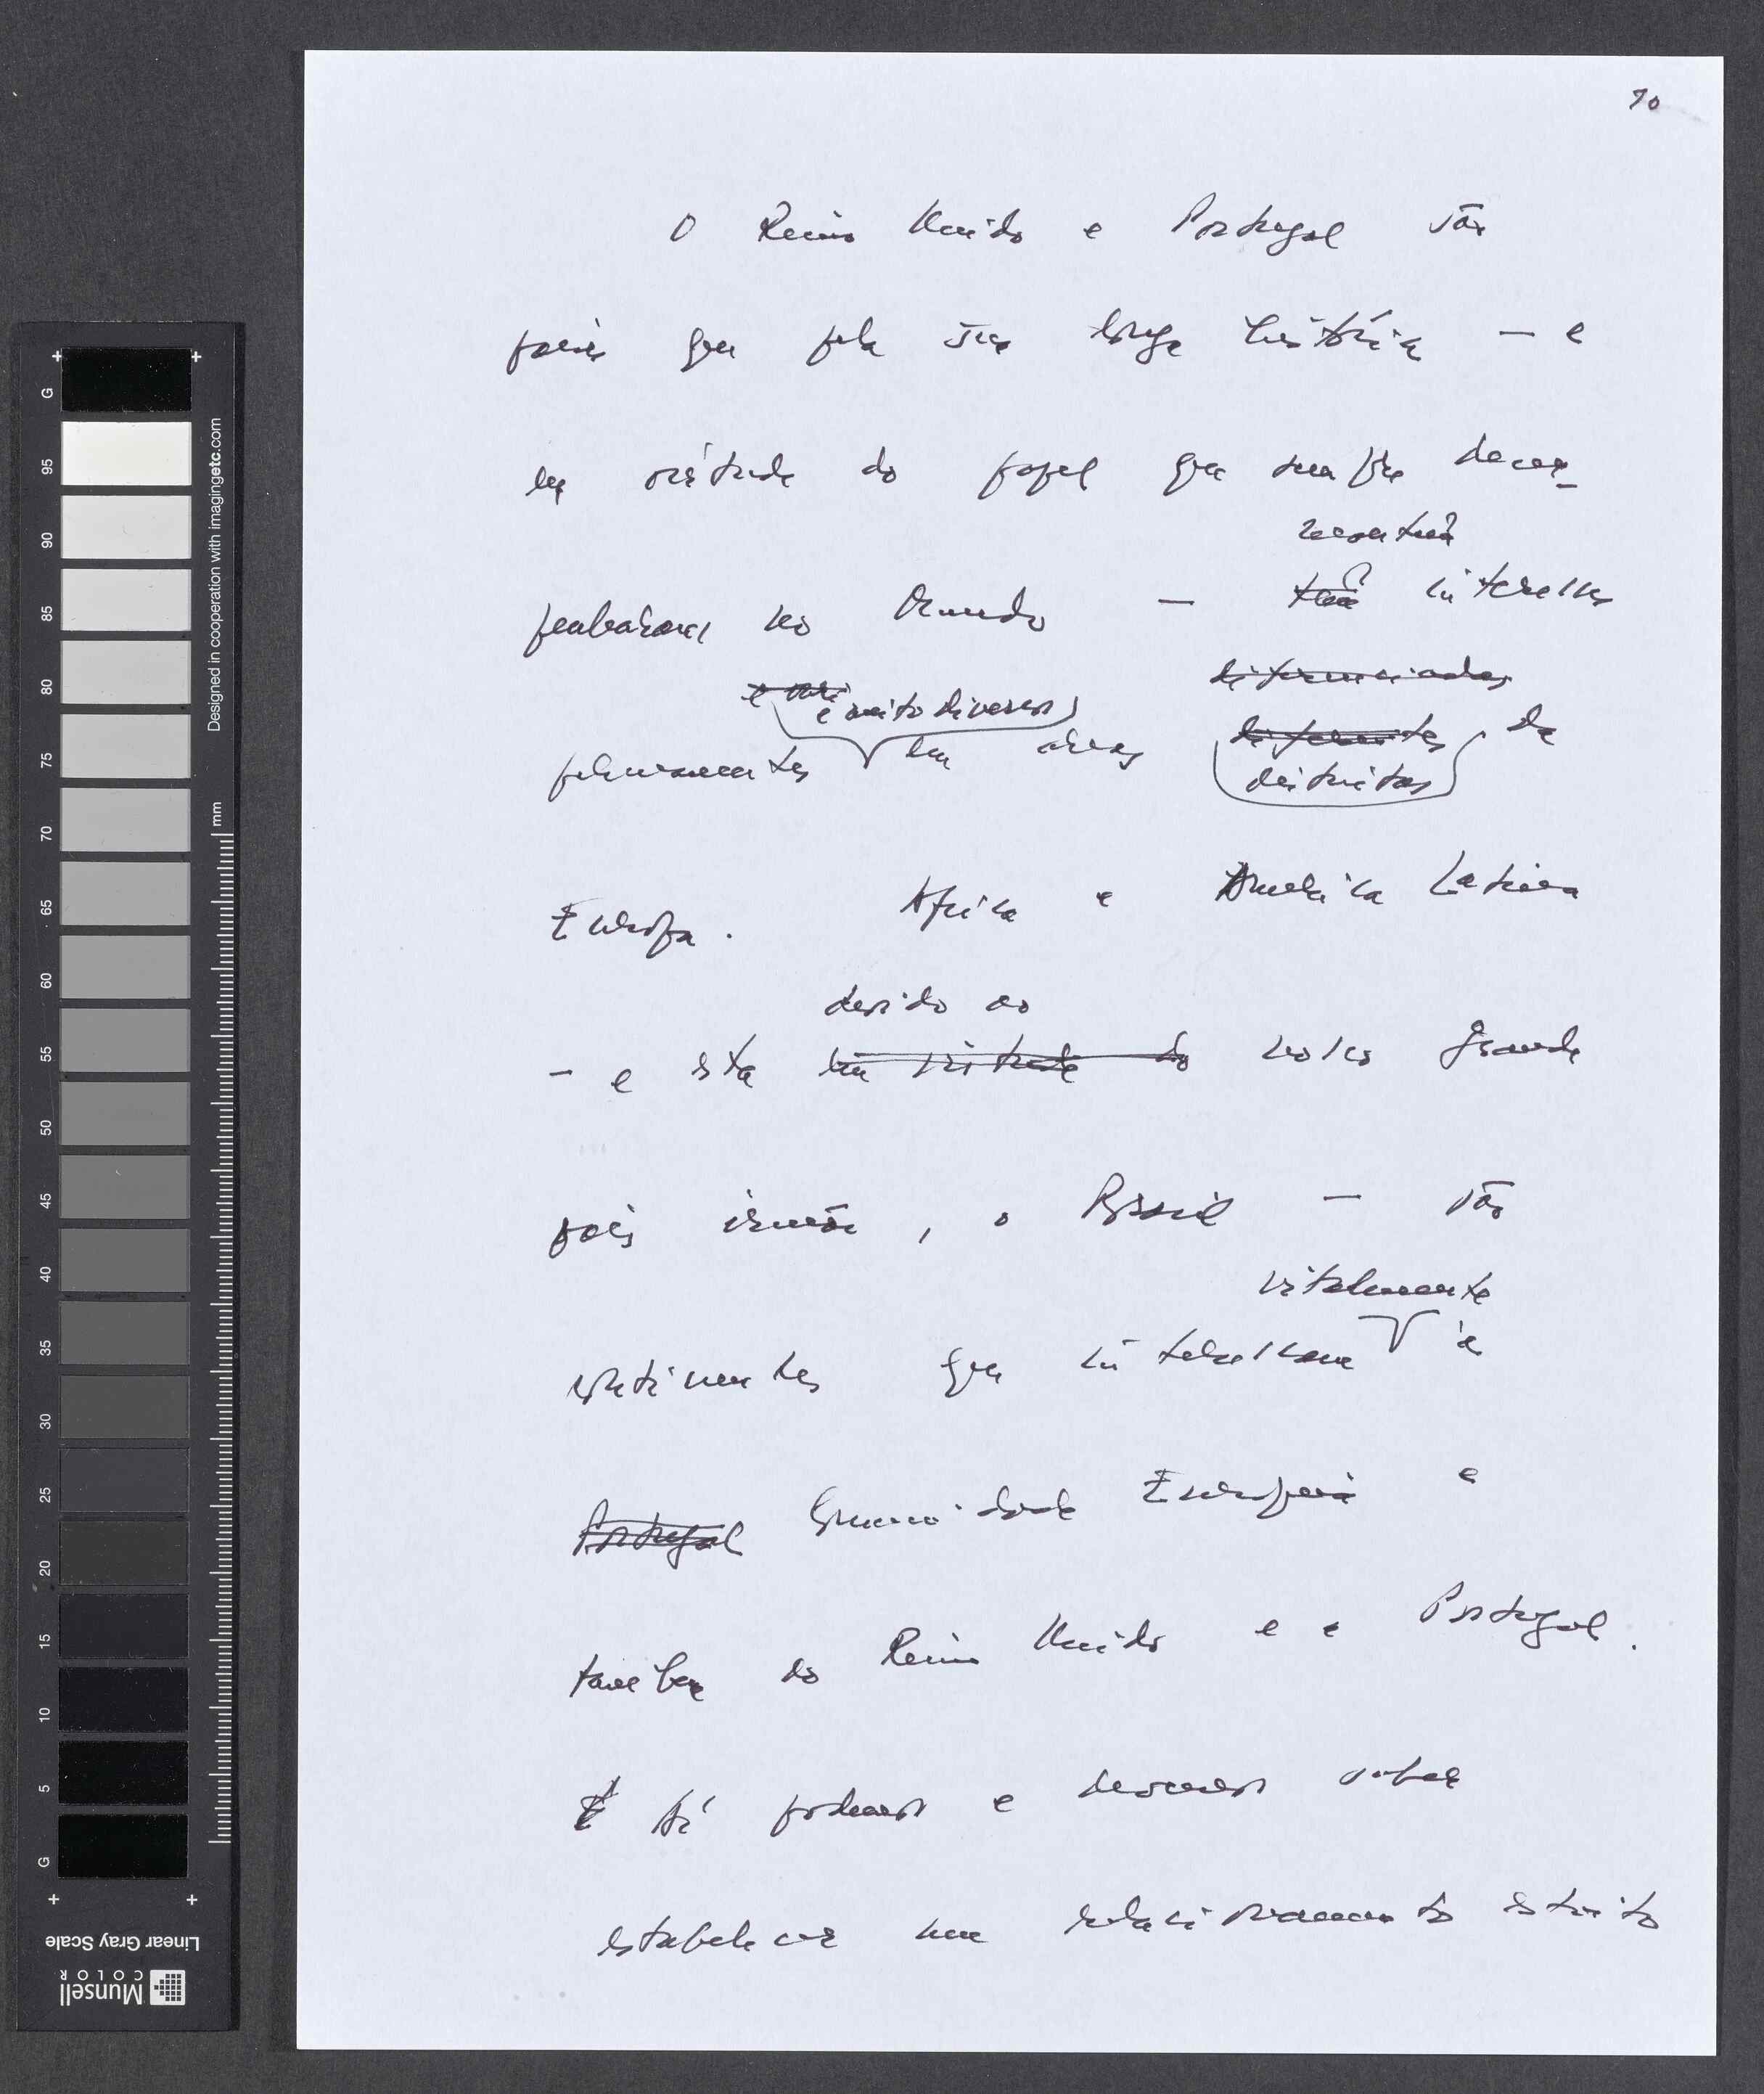 10
O Reino Unido e Portugal são
países que pela sua longa história — e
em virtude do papel que sempre desem-
penharam no Mundo — têm interesses
permanentes e muito diversos em áreas
diferenciadas
diferentes da
distintas
Europa. Africa e America Latina
devido ao
— e esta em virtude do nosso grande
país irmão, o Brasil — são
vitalmente
continentes que interessam à
Portugal Comunidade Europeia e
também ao Reino Unido e a Portugal.
E Aí podemos e devemos saber
estabelecer um relacionamento estreito
Designed in cooperation with imagingetc.com
mm
G 95 90 85 80 75 70 65 60 55 50 45 40 35 30 25 20 15 10 5 G
Linear Gray Scale
Munsell
COLOR